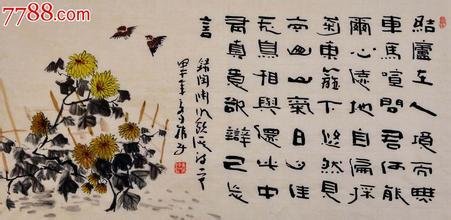 7788.com
結廬在人境而無
車馬喧問君何能
爾心遠地自偏採
菊東籬下悠然見
南山山氣日夕佳
飛鳥相與還此中
有真意欲辯已忘
言
甲午年